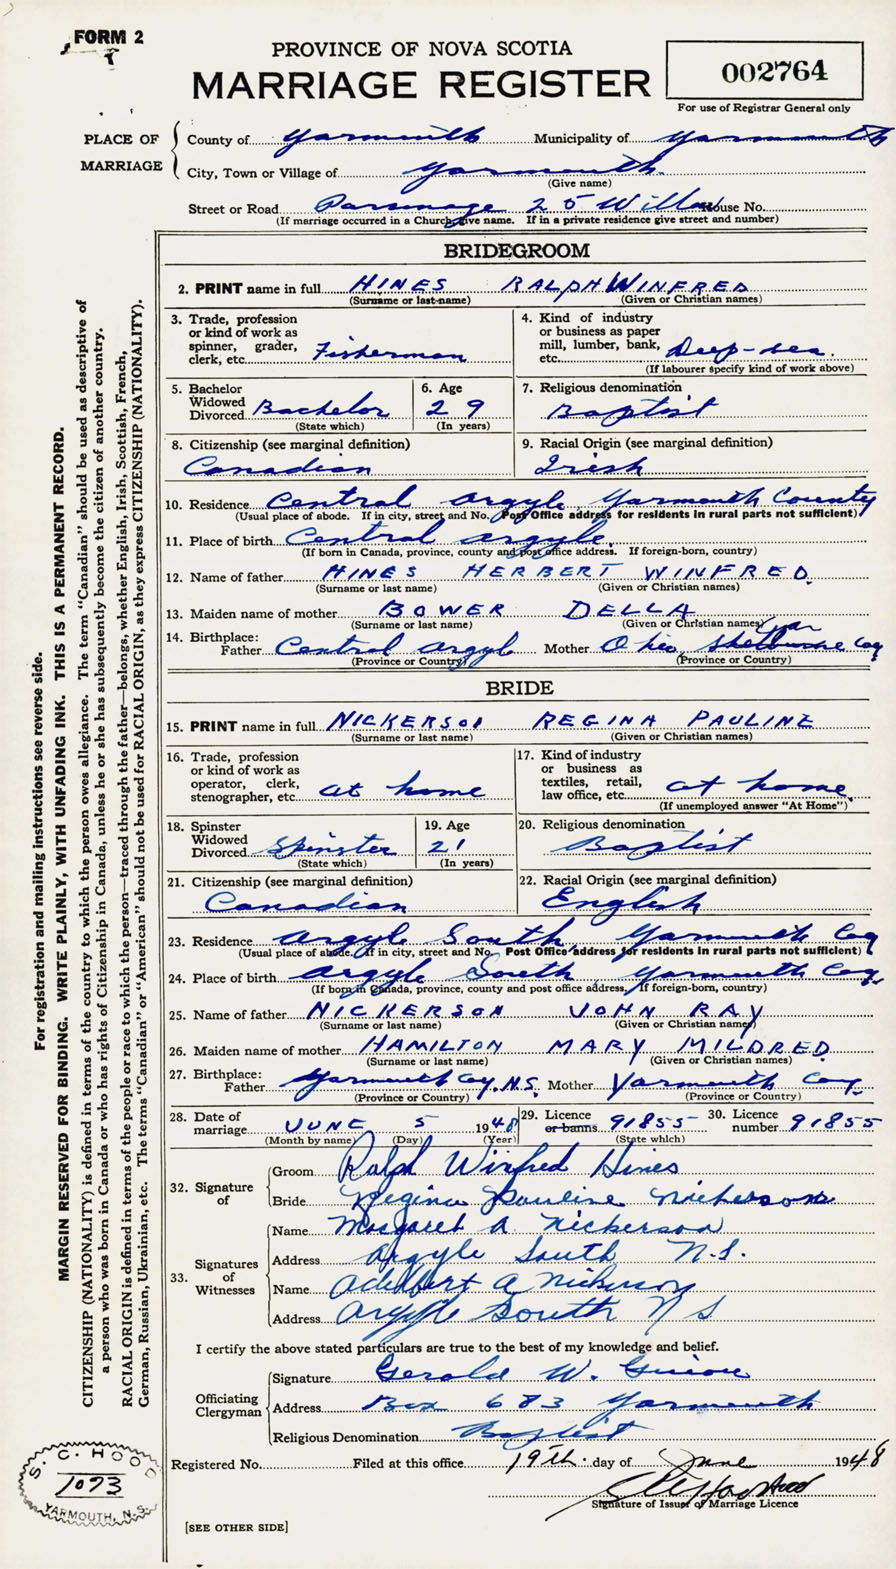 FORM 2
PROVINCE OF NOVA SCOTIA
MARRIAGE REGISTER
002764
For use of Registrar General only
PLACE OF MARRIAGE
County of Yarmouth Municipality of Yarmouth
City, Town or Village of Yarmouth
(Give name)
Street or Road Parsonage 25 Willow House No.
(If marriage occurred in a Church give name. If in a private residence give street and number)
BRIDEGROOM
2. PRINT name in full HINES RALPH WINFRED
(Surname or last name) (Given or Christian names)
3. Trade, profession or kind of work as spinner, grader, clerk, etc. Fisherman
4. Kind of industry or business as paper mill, lumber, bank, etc. Deep-sea.
(If labourer specify kind of work above)
5. Bachelor Widowed Divorced Bachelor
(State which)
6. Age 29
(In years)
7. Religious denomination
Baptist
8. Citizenship (see marginal definition)
Canadian
9. Racial Origin (see marginal definition)
Irish
10. Residence Central Argyle Yarmouth County
(Usual place of abode. If in city, street and No. Post Office address for residents in rural parts not sufficient)
11. Place of birth Central Argyle.
(If born in Canada, province, county and post office address. If foreign-born, country)
12. Name of father HINES HERBERT WINFRED
(Surname or last name) (Given or Christian names)
13. Maiden name of mother BOWER DELLA
(Surname or last name) (Given or Christian names)
14. Birthplace:
Father Central Argyle Mother Ohio Shelbourne Coy
(Province or Country) (Province or Country)
BRIDE
15. PRINT name in full NICKERSON REGINA PAULINE
(Surname or last name) (Given or Christian names)
16. Trade, profession or kind of work as operator, clerk, stenographer, etc. at home
17. Kind of industry or business as textiles, retail, law office, etc. at home
(If unemployed answer "At Home")
18. Spinster Widowed Divorced Spinster
(State which)
19. Age 21
(In years)
20. Religious denomination
Baptist
21. Citizenship (see marginal definition)
Canadian
22. Racial Origin (see marginal definition)
English
23. Residence Argyle South Yarmouth Coy
(Usual place of abode. If in city, street and No. Post Office address for residents in rural parts not sufficient)
24. Place of birth Argyle South Yarmouth Coy
(If born in Canada, province, county and post office address, If foreign-born, country)
25. Name of father NICKERSON JOHN RAY
(Surname or last name) (Given or Christian names)
26. Maiden name of mother HAMILTON MARY MILDRED
(Surname or last name) (Given or Christian names)
27. Birthplace:
Father Yarmouth Coy, N.S. Mother Yarmouth Coy
(Province or Country) (Province or Country)
28. Date of marriage JUNE 5 1948
(Month by name) (Day) (Year)
29. Licence or banns 91855
(State which)
30. Licence number 91855
32. Signature of
Groom Ralph Winfred Hines
Bride Regina Pauline Nickerson
33. Signatures of Witnesses
Name Margaret A Nickerson
Address Argyle South N.S.
Name Adelbert A Nickerson
Address Argyle South N S
I certify the above stated particulars are true to the best of my knowledge and belief.
Officiating Clergyman
Signature Gerald W. Guiou
Address Box 683 Yarmouth
Religious Denomination Baptist
Registered No. Filed at this office 19th. day of June 1948
Signature of Issuer of Marriage Licence
[SEE OTHER SIDE]
S. C. HOOD
1093
YARMOUTH, N.S.
For registration and mailing instructions see reverse side.
MARGIN RESERVED FOR BINDING. WRITE PLAINLY, WITH UNFADING INK. THIS IS A PERMANENT RECORD.
CITIZENSHIP (NATIONALITY) is defined in terms of the country to which the person owes allegiance. The term "Canadian" should be used as descriptive of
a person who was born in Canada or who has rights of Citizenship in Canada, unless he or she has subsequently become the citizen of another country.
RACIAL ORIGIN is defined in terms of the people or race to which the person—traced through the father—belongs, whether English, Irish, Scottish, French,
German, Russian, Ukrainian, etc. The terms "Canadian" or "American" should not be used for RACIAL ORIGIN, as they express CITIZENSHIP (NATIONALITY).